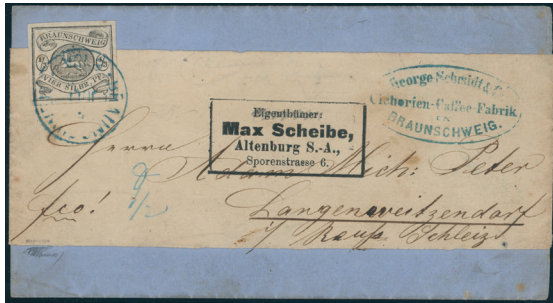 BRAUNSCHWEIG
VIER SILBR. PF.
George Schmidt & Co
Cichorien-Caffee-Fabrik
IN
BRAUNSCHWEIG.
Eigenthümer:
Max Scheibe,
Altenburg S.-A.,
Sporenstrasse 6.
Herrn
Adam Mich: Peter
fco!
Langenweitzendorf
i/ Reuss Schleiz